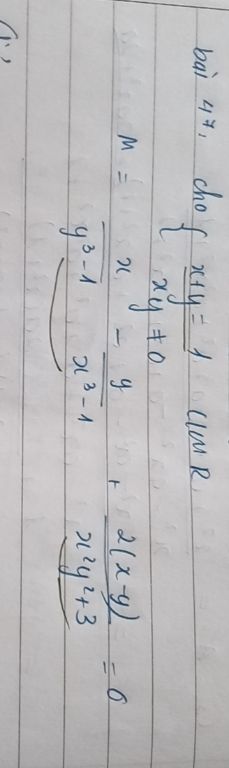 bài 47, cho { x+y = 1 CMR
xy ≠ 0
M = x/(y³-1) - y/(x³-1) + 2(x-y)/(x²y²+3) = 0